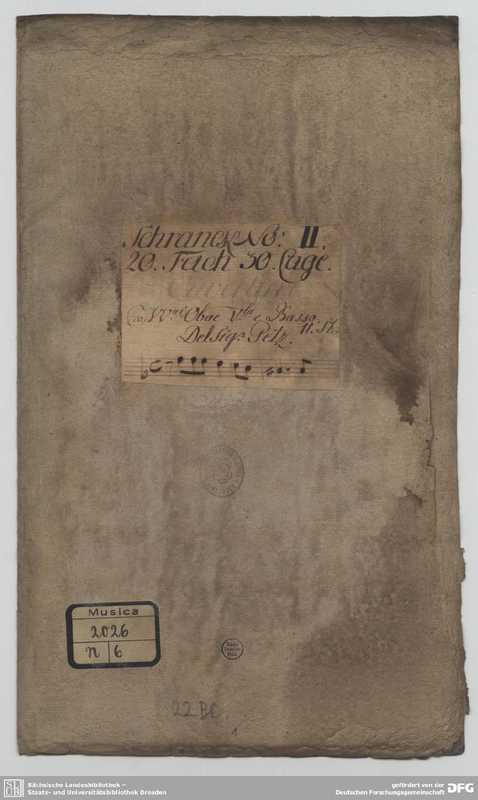 Schranck No: II.
20. Fach 30. Lage.
Ouverture
Co VVni Oboe Vla e Basso.
11. St.
Del Sigr Petz.
Musica
2026
n 6
22 Bl.
1
SLUB
Sächsische Landesbibliothek –
Staats- und Universitätsbibliothek Dresden
gefördert von der
Deutschen Forschungsgemeinschaft
DFG